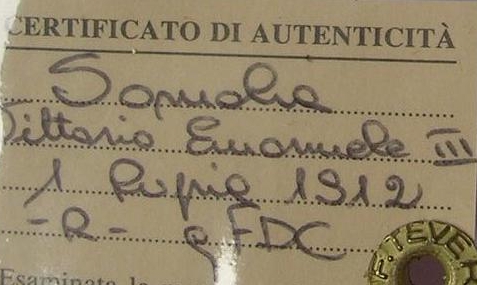 CERTIFICATO DI AUTENTICITÀ
Somalia
Vittorio Emanuele III
1 Rupia 1912
-R- qFDC
F. TEVER
Esaminata la